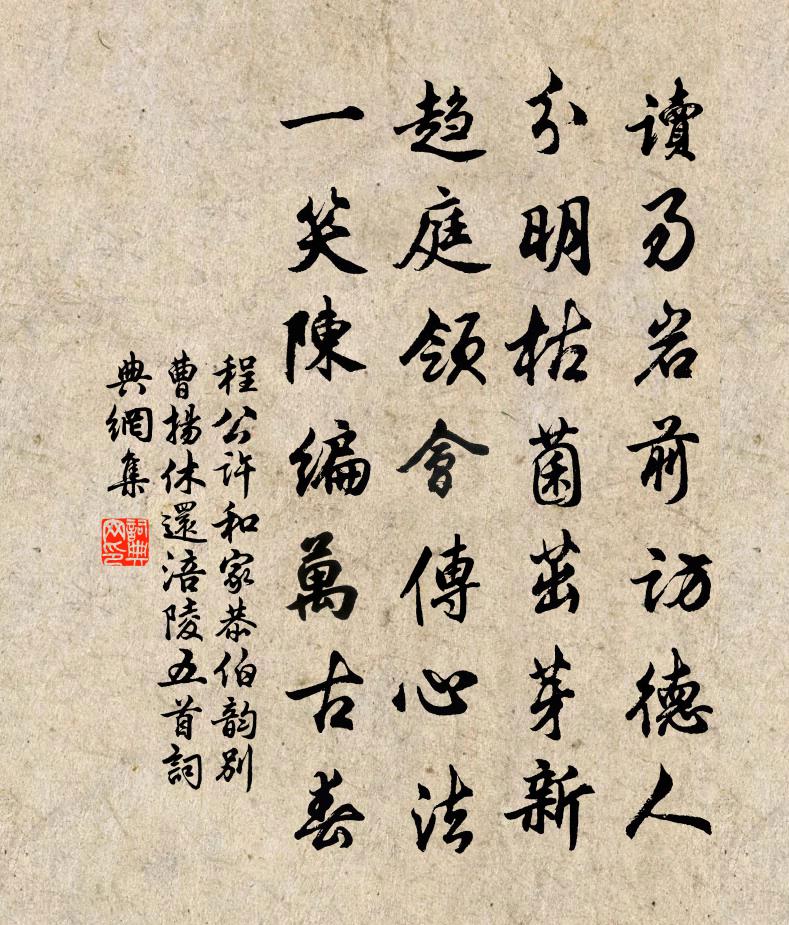 讀易岩前訪德人
分明枯菌茁芽新
趨庭領會傳心法
一笑陳編萬古春
程公許和家恭伯韵別
曹揚休還涪陵五首詞
典網集
詞典
网印